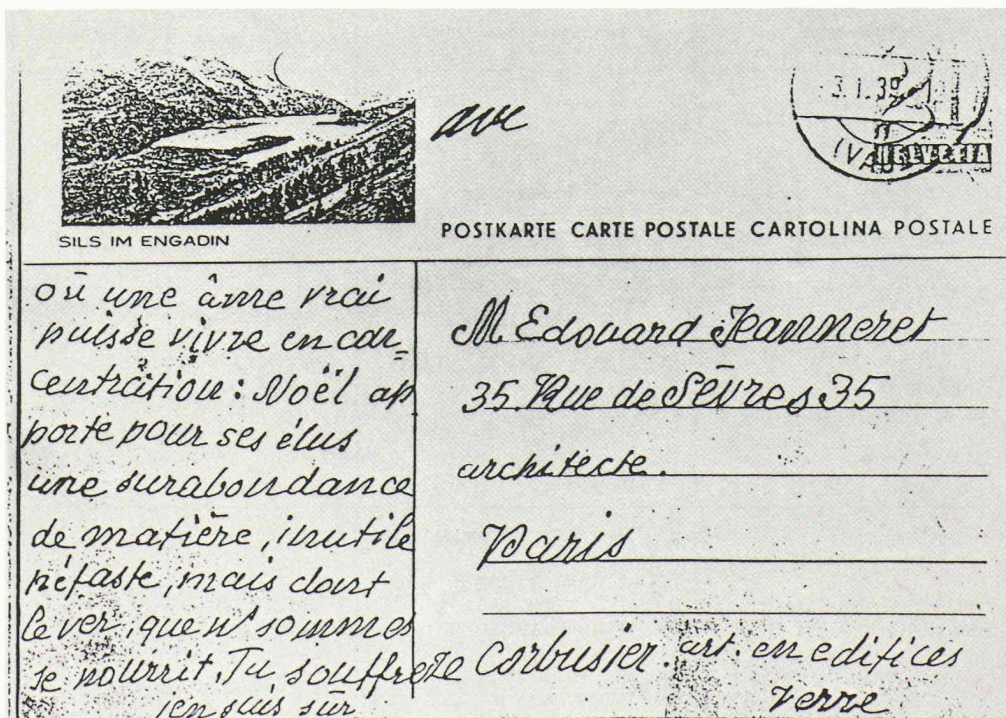 ave
3.1.39
(VAUD)
HELVETIA
SILS IM ENGADIN
POSTKARTE CARTE POSTALE CARTOLINA POSTALE
où une âme vrai
puisse vivre en con=
centration: Noël ap
porte pour ses élus
une surabondance
de matière, inutile
néfaste, mais dont
le ver, que ns sommes
se nourrit. Tu souffre
j'en suis sûr
M. Edouard Jeanneret
35. Rue de Sèvres 35
architecte.
Paris
Le Corbusier. art. en edifices
verre